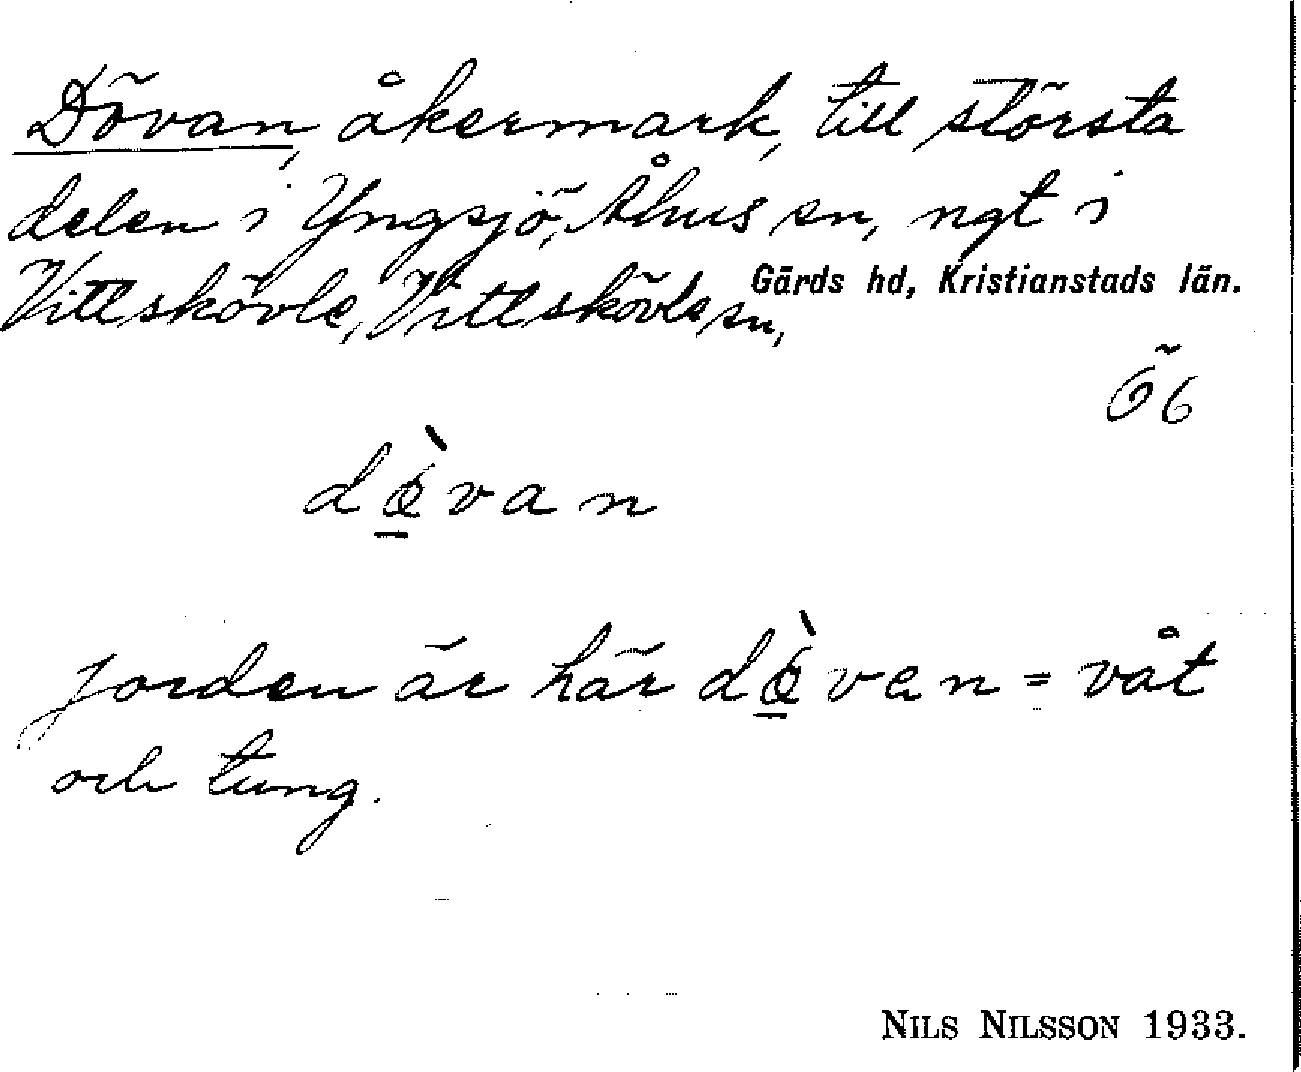 Dövan, åkermark, till största
delen i Yngsjö, Åhus sn, ngt i
Vittskövle, Vittskövle sn, Gärds hd, Kristianstads län.
Ö6
dœ̀van
Jorden är här dœ̀ven = våt
och tung.
NILS NILSSON 1933.